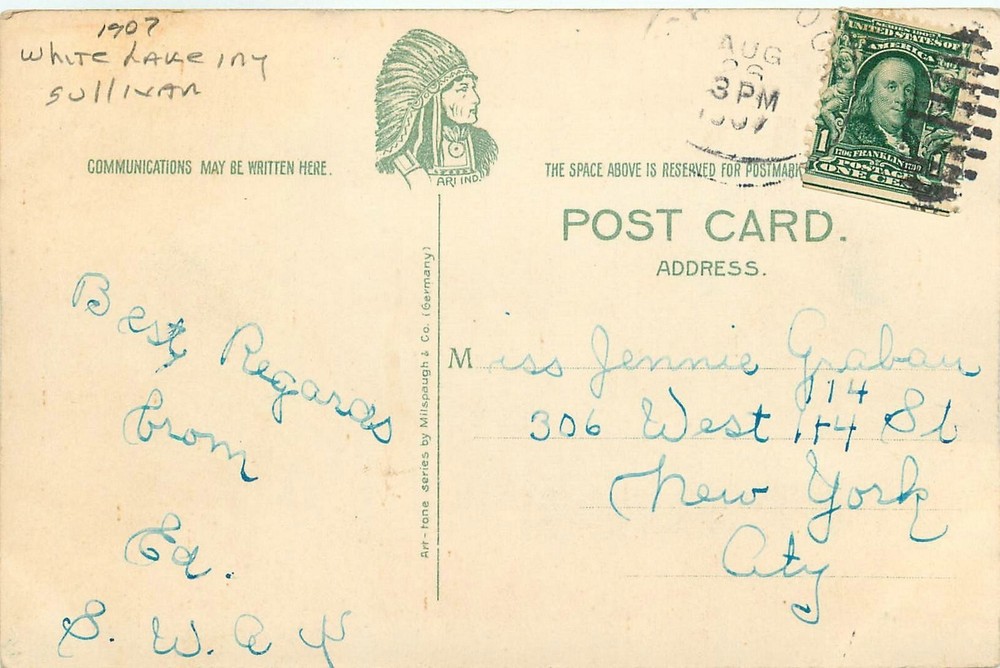 1907
White Lake NY
Sullivan
COMMUNICATIONS MAY BE WRITTEN HERE.
ART IND.
AUG
26
3 PM
1907
SERIES 1902
UNITED STATES OF
AMERICA
1 1706 FRANKLIN 1790 1
POSTAGE
ONE CENT
THE SPACE ABOVE IS RESERVED FOR POSTMARK
POST CARD.
ADDRESS.
Best Regards
From
Ed.
S. W. A. K
Art-tone series by Milspaugh & Co. (Germany)
Miss Jennie Grabau
114
306 West 114 St
New York
City